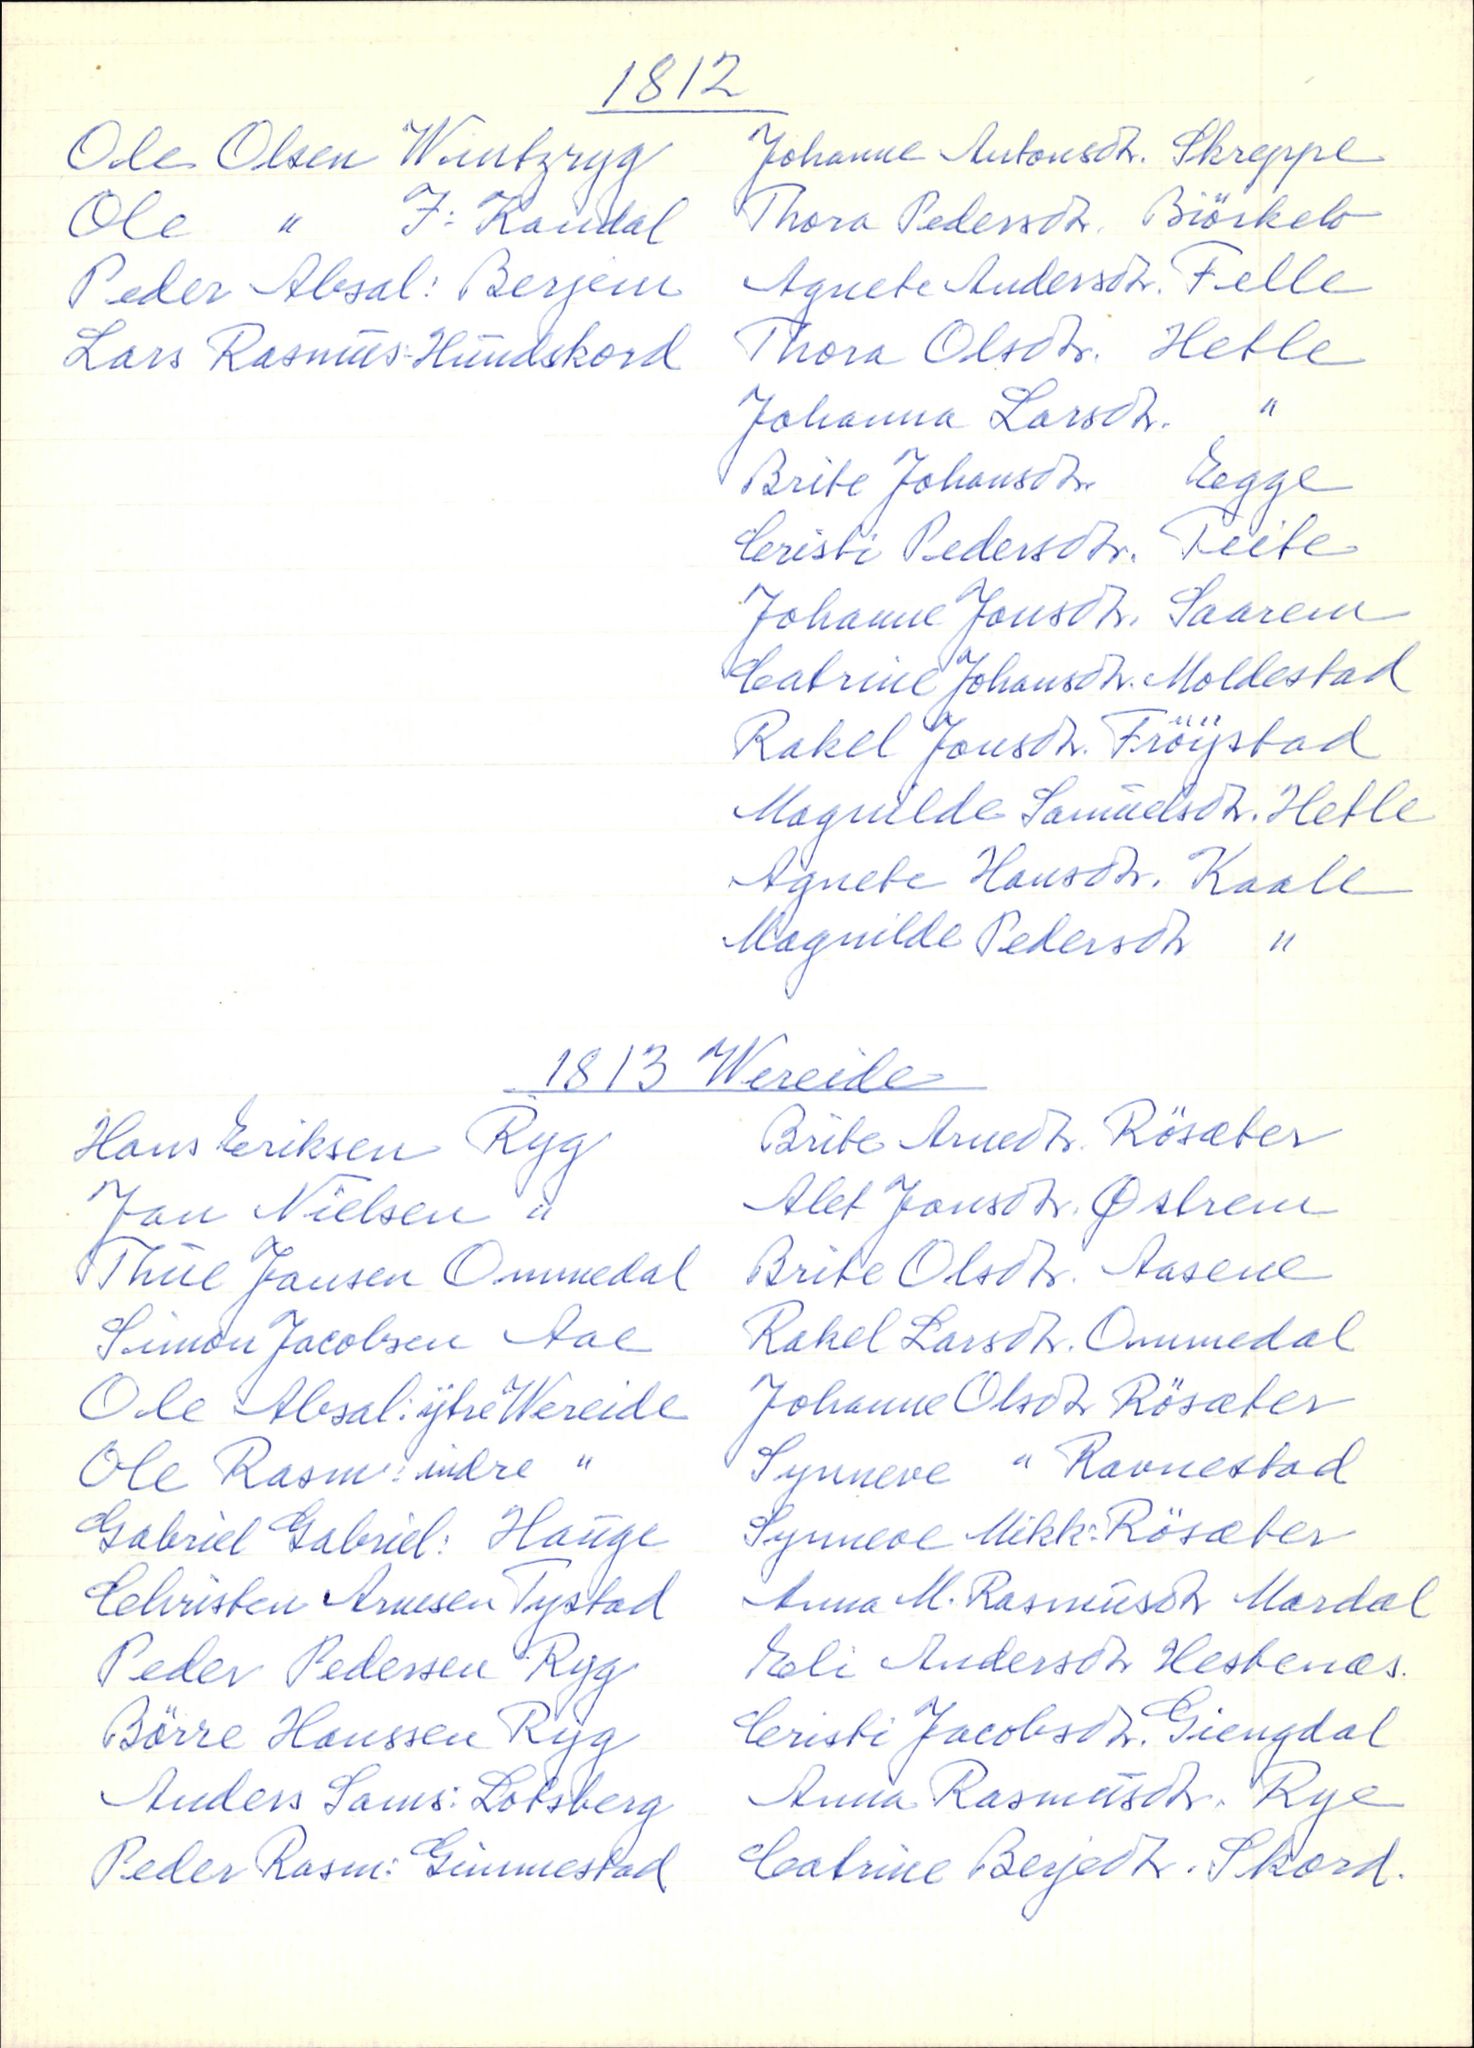 1812
Ole Olsen Wintzryg
Ole " F: Kandal
Peder Absal: Berjem
Lars Rasmus: Hundskord
Johanne Antonsdtr. Skreppe
Thora Pedersdtr. Biörkelo
Agnete Andersdtr. Felle
Thora Olsdtr. Hetle
Johanna Larsdtr. "
Brite Johansdtr. Egge
Cristi Pedersdtr. Teite
Johanne Jonsdtr. Saarem
Catrine Johansdtr. Moldestad
Rakel Jonsdtr. Fröÿstad
Magnilde Samuelsdtr. Hetle
Agnete Hansdtr. Kaale
Magnilde Pedersdtr "
1813 Wereide
Hans Eriksen Ryg
Jan Nielsen "
Thue Jansen Ommedal
Simon Jacobsen Aae
Ole Absal: ÿtre Wereide
Ole Rasm: indre "
Gabriel Gabriel: Hauge
Christen Arnesen Tystad
Peder Pedersen Ryg
Börre Hanssen Ryg
Anders Sams: Lotsberg
Peder Rasm: Gimmestad
Brite Arnedtr. Rösæter
Alet Jonsdtr. Østrem
Brite Olsdtr. Aasene
Rakel Larsdtr. Ommedal
Johanne Olsdtr Rösæter
Synneve " Ravnestad
Synneve Mikk: Rösæter
Anna M. Rasmusdtr Mardal
Eli Andersdtr Hestenæs.
Cristi Jacobsdtr. Giengdal
Anna Rasmusdtr. Rye
Catrine Berjedtr. Skord.